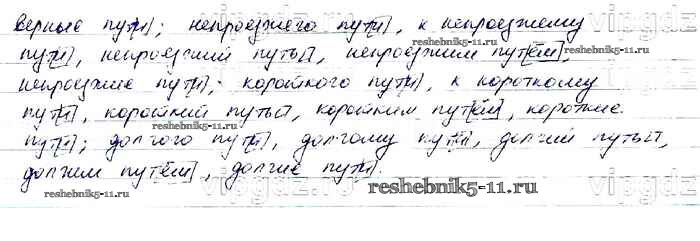 верные пут[и]; непроезжего пут[и], к непроезжему
пут[и], непроезжий путь[], непроезжим пут[ём],
непроезжие пут[и]; короткого пут[и], к короткому
пут[и], короткий путь[], коротким пут[ём], короткие
пут[и]; долгого пут[и], долгому пут[и], долгий путь[],
долгим пут[ём], долгие пут[и].
reshebnik5-11.ru
reshebnik5-11.ru
reshebnik5-11.ru
reshebnik5-11.ru
vipgdz.ru